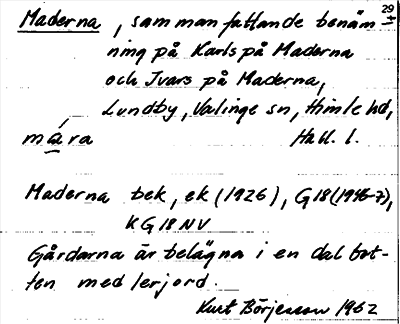 Maderna, sammanfattande benäm-
29/4
ning på Karls på Maderna
och Ivars på Maderna,
Lundby, Valinge sn, Himle hd,
mára Hall. l.
Maderna bek, ek (1926), G18 (1946-7),
KG18NV
Gårdarna är belägna i en dalbot-
ten med lerjord.
Kurt Börjesson 1962